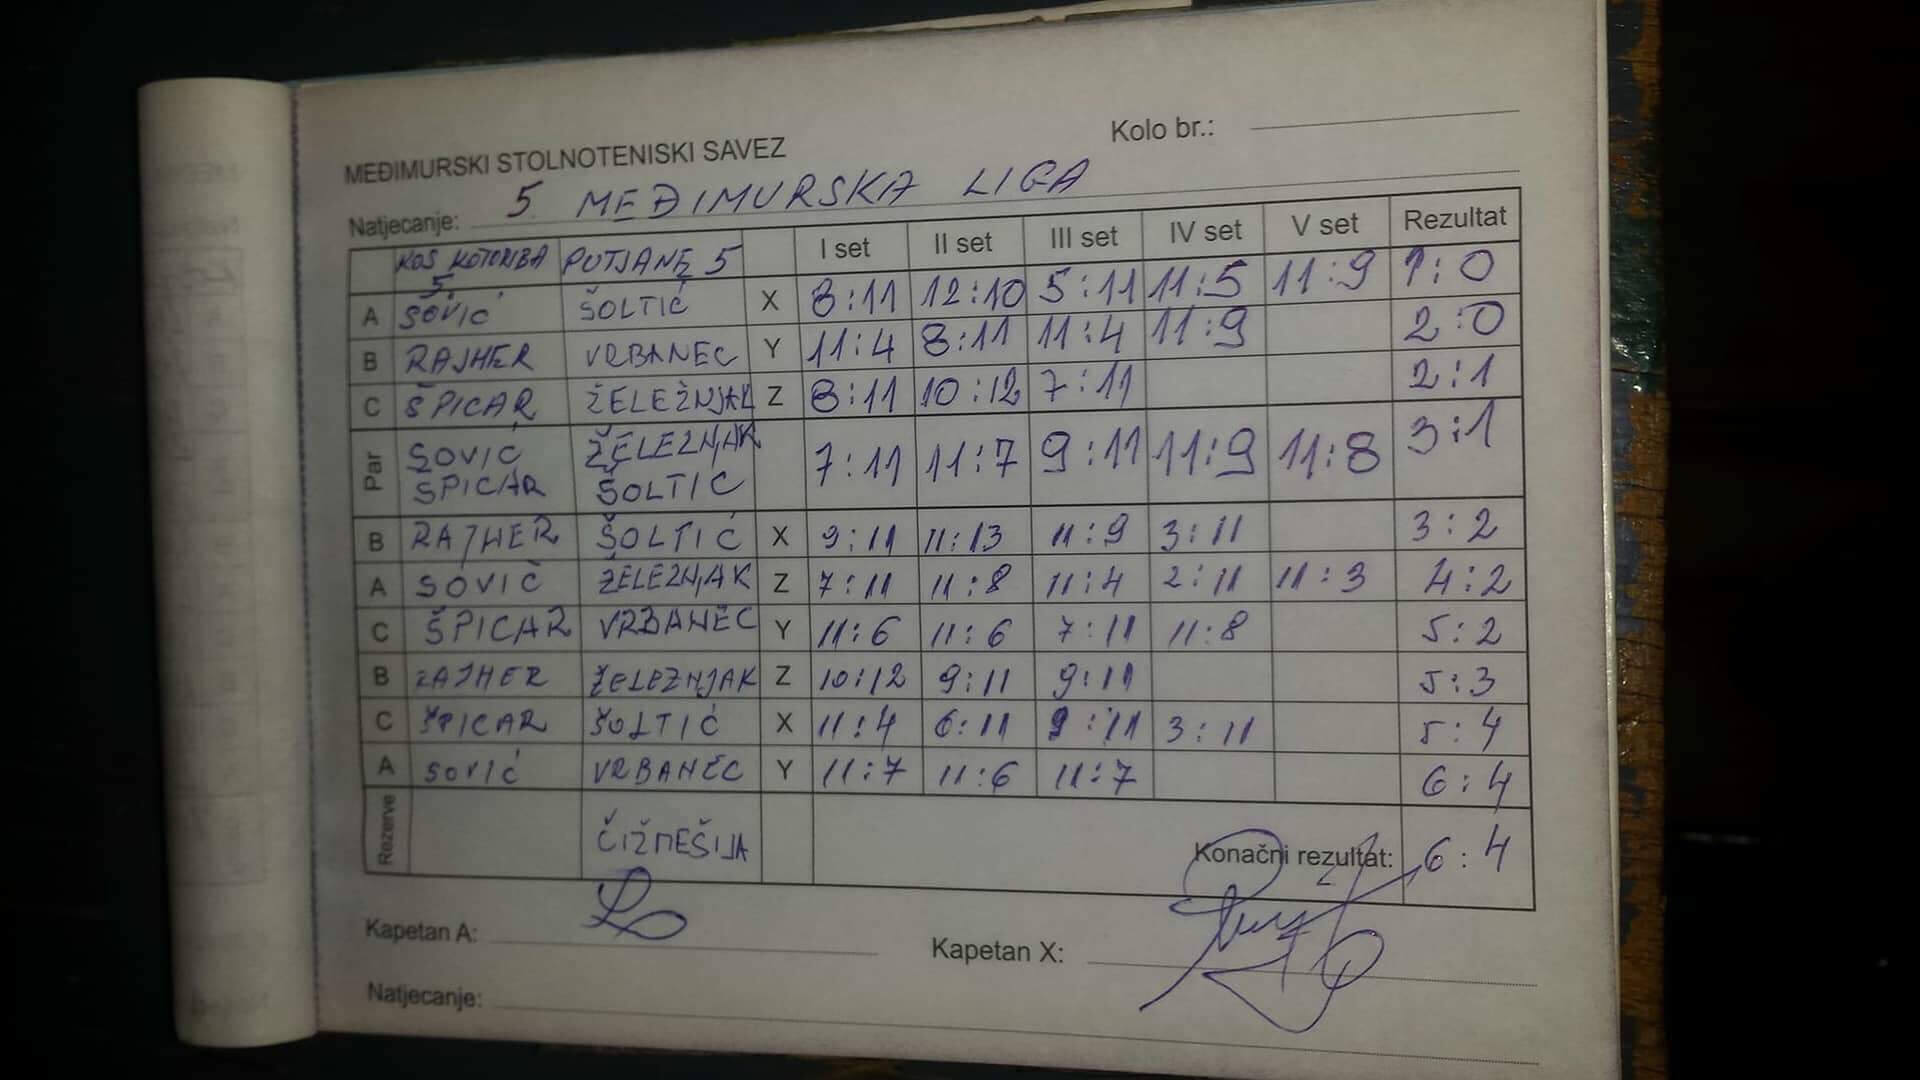 MEĐIMURSKI STOLNOTENISKI SAVEZ
Kolo br.:
Natjecanje: 5. MEĐIMURSKA LIGA
KOS KOTORIBA 5. PUTJANE 5 I set II set III set IV set V set Rezultat
A SOVIĆ ŠOLTIĆ X 8:11 12:10 5:11 11:5 11:9 1:0
B RAJHER VRBANEC Y 11:4 8:11 11:4 11:9 2:0
C ŠPICAR ŽELEŽNJAK Z 8:11 10:12 7:11 2:1
Par SOVIĆ ŽELEZNJAK 7:11 11:7 9:11 11:9 11:8 3:1
ŠPICAR ŠOLTIĆ
B RAJHER ŠOLTIĆ X 9:11 11:13 11:9 3:11 3:2
A SOVIĆ ŽELEZNJAK Z 7:11 11:8 11:4 2:11 11:3 4:2
C ŠPICAR VRBANEC Y 11:6 11:6 7:11 11:8 5:2
B RAJHER ŽELEZNJAK Z 10:12 9:11 9:11 5:3
C ŠPICAR ŠOLTIĆ X 11:4 6:11 9:11 3:11 5:4
A SOVIĆ VRBANEC Y 11:7 11:6 11:7 6:4
Rezerve ČIŽMEŠIJA Konačni rezultat: 6:4
Kapetan A: Kapetan X:
Natjecanje: